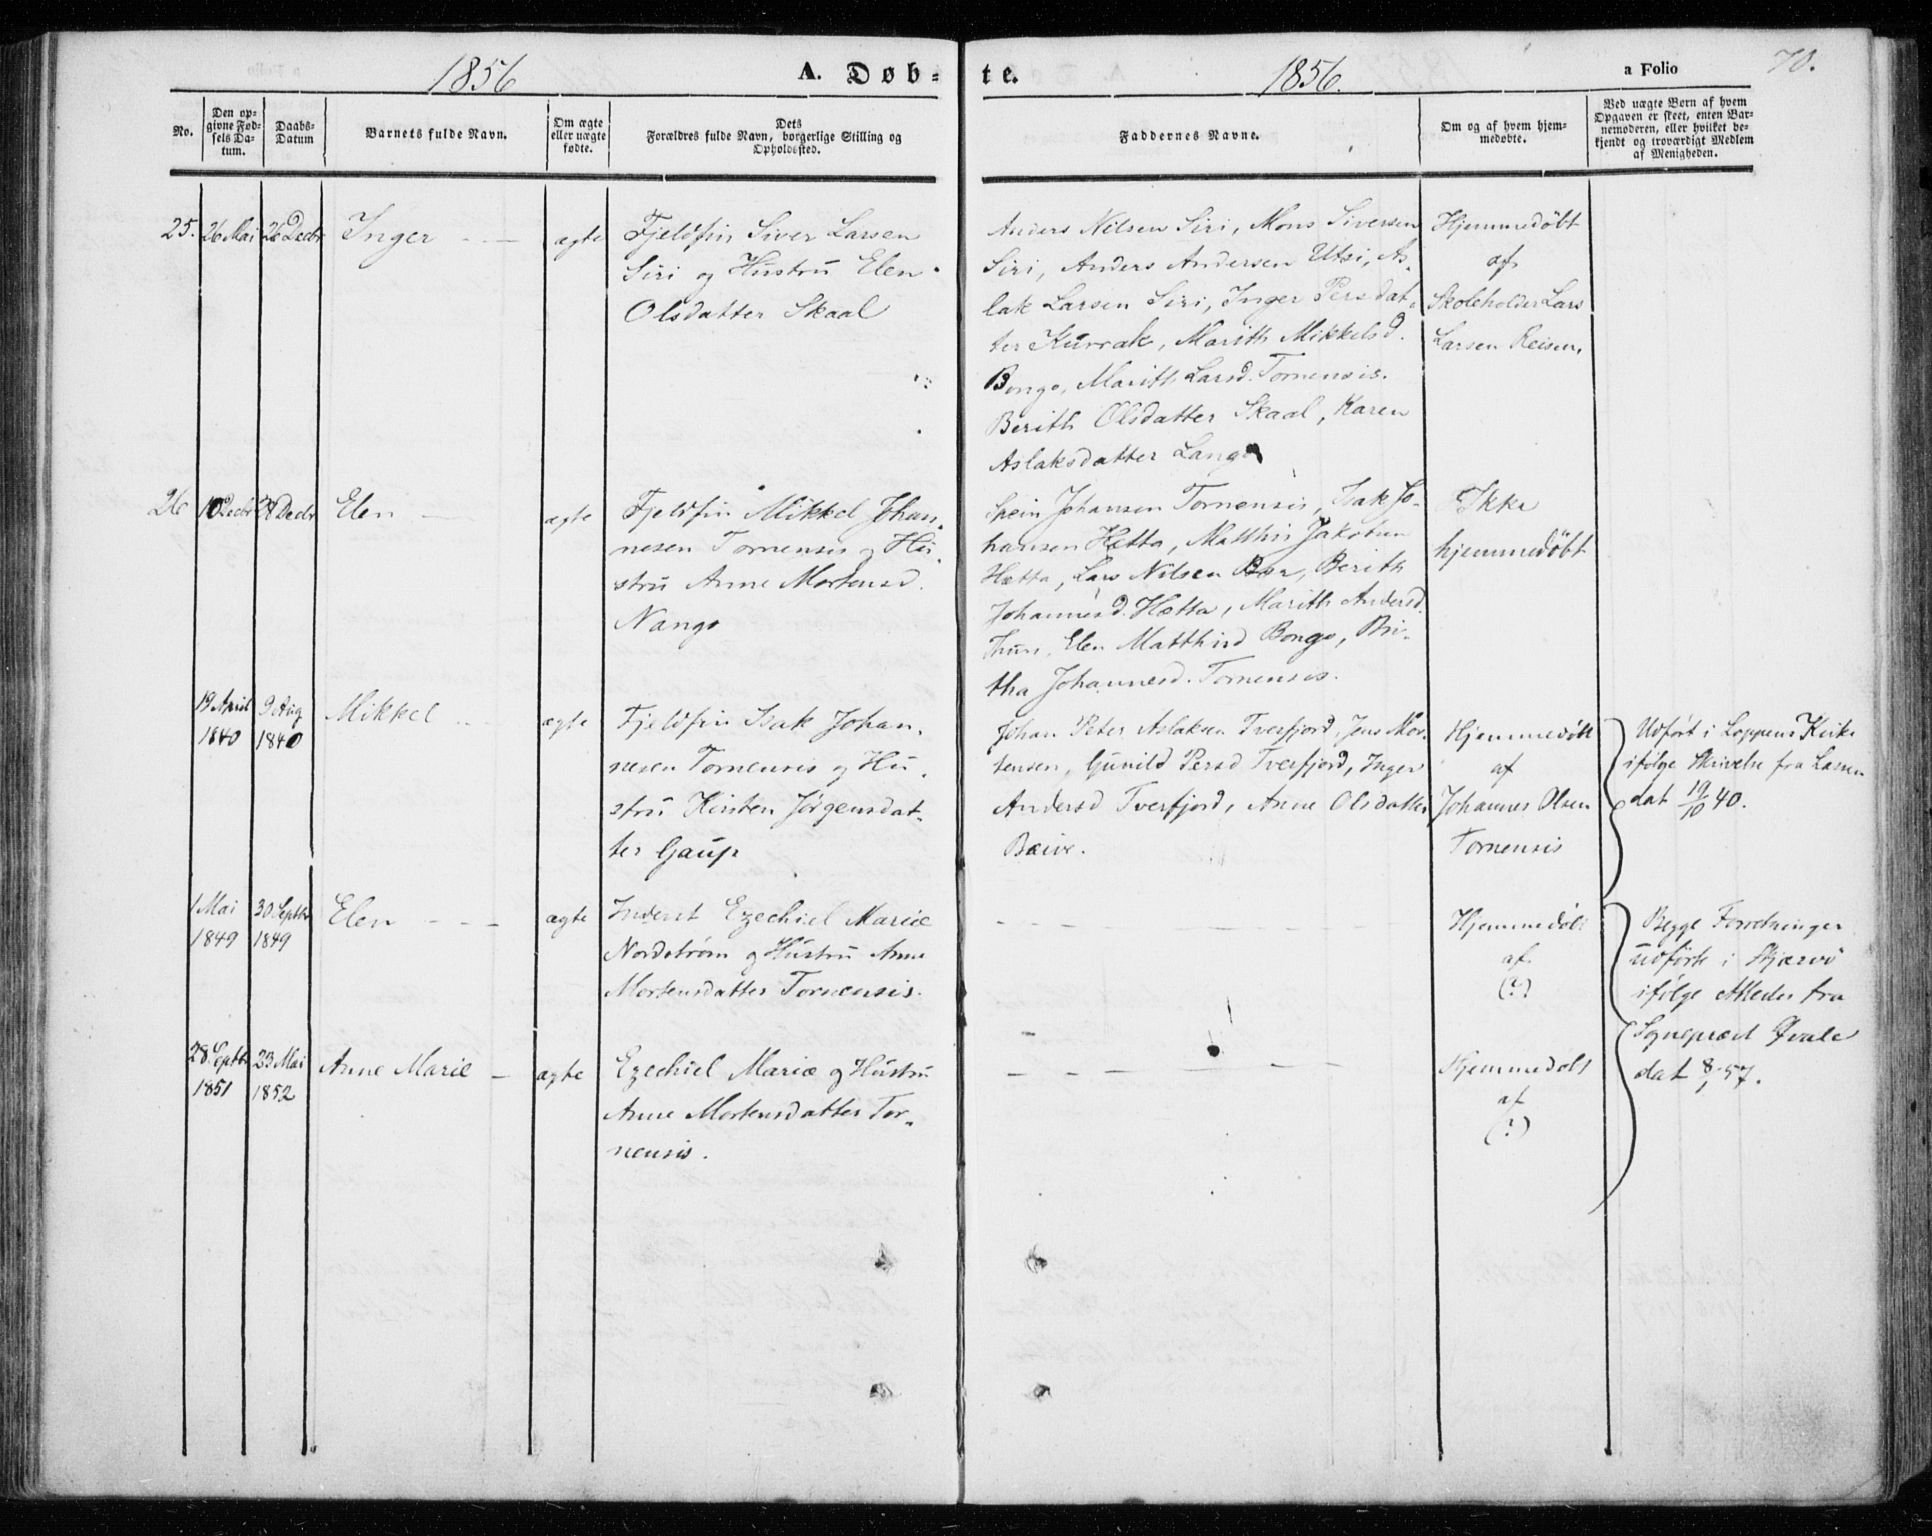 1856
A. Døb-
te.
1856.
a Folio
70.
No.
Den op-
givne Fød-
sels Da-
tum.
Daabs-
Datum
Barnets fulde Navn.
Om ægte
eller uægte
fødte.
Dets
Forældres fulde Navn, borgerlige Stilling og
Opholdssted.
Faddernes Navne.
Om og af hvem hjem-
medøbte.
Ved uægte Børn af hvem
Opgaven er skeet, enten Bar-
nemoderen, eller hvilket be-
kjendt og troværdigt Medlem
af Menigheden.
25.
26 Mai
26 Decbr
Inger
ægte
Fjeldfin Siver Larsen
Siri og Hustru Elen
Olsdatter Skaal
Anders Nilsen Siri, Mons Siversen
Siri, Anders Andersen Utsi, As-
lak Larsen Siri, Inger Persdat-
ter Kurrak, Marith Mikkelsd.
Bongo, Marith Larsd. Tornensis.
Berith Olsdatter Skaal, Karen
Aslaksdatter Lango
Hjemmedöbt
af
Skoleholder Lars
Larsen Reisen.
26
10 Decbr
28 Decbr
Elen
ægte
Fjeldfin Mikkel Johan-
nesen Tornensis og Hu-
stru Anne Mortensd.
Nango
Spein Johansen Tornensis, Isak Jo-
hansen Hætta, Matthis Jakobsen
Hætta, Lars Nilsen Bær, Berith
Johannesd. Hætta, Marith Andersd.
Thuri, Elen Matthisd Bongo, Bri-
tha Johannesd. Tornensis.
Ikke
hjemmedöbt
19 April
1840
9 Aug
1840
Mikkel
ægte
Fjeldfin Isak Johan-
nesen Tornensis og Hu-
stru Kirsten Jørgensdat-
ter Gaup
Johan Peter Aslaksen Tverfjord, Jens Mor-
tensen, Gunild Persd Tverfjord, Inger
Andersd Tverfjord, Anne Olsdatter
Bæive.
Hjemmedöbt
af
Johannes Olsen
Tornensis
Udført i Loppens Kirke
ifølge Skrivelse fra Lassen
dat 19/10 40.
1 Mai
1849
30 Septb
1849
Elen
ægte
Inderst Ezechiel Mariæ
Nordstrøm og Hustru Anne
Mortensdatter Tornensis.
Hjemmedöbt
af
(?)
Begge Forretninger
udførte i Skjærvö
ifölge Attester fra
Sognepræst Qvale
dat 8/1 57.
28 Septb
1851
23 Mai
1852
Anne Marie
ægte
Ezechiel Mariæ og Hustru
Anne Mortensdatter Tor-
nensis.
Hjemmedöbt
af
(?)